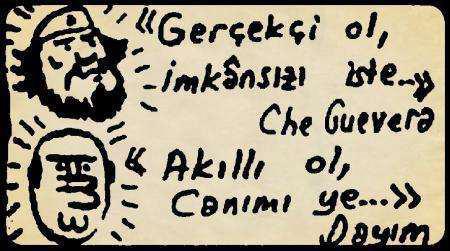 “Gerçekçi ol,
imkânsızı iste...»
Che Guevera
“Akıllı ol,
Canımı ye...»
Dayım